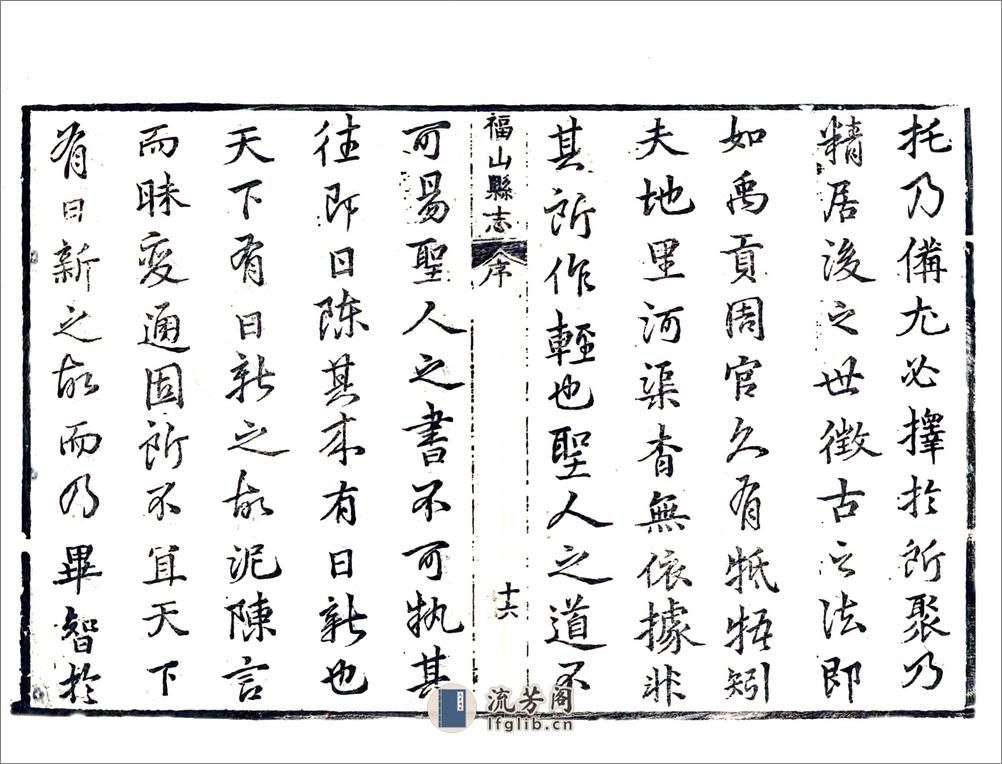 托乃備尤必擇於所聚乃
精居後之世徵古之法即
如禹貢周官久有牴牾矧
夫地里河渠杳無依據非
其所作輕也聖人之道不
福山縣志 序 十六
可易聖人之書不可執其
往即日陈其来有日新也
天下有日新之故泥陳言
而昧变通固所不宜天下
有日新之故而乃畢智於
流芳阁
lfglib.cn